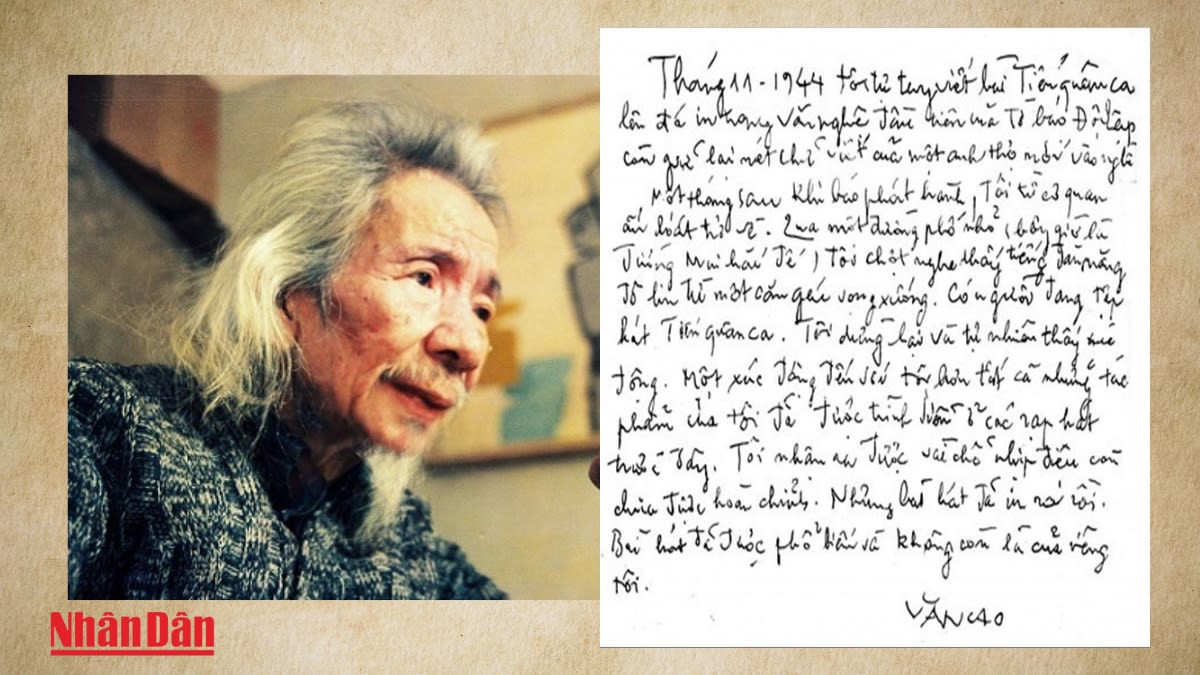 Tháng 11 - 1944 tôi tự tay viết bài Tiến quân ca
lên đá in trong Văn nghệ đầu tiên mà Tờ báo Độc lập
còn giữ lại nét chữ viết của một anh thợ mới vào nghề
Một tháng sau khi báo phát hành, Tôi từ cơ quan
ấn loát trở về. Qua một đường phố nhỏ (bây giờ là
đường Mai hắc đế) Tôi chợt nghe thấy tiếng đàn măng
đô lin từ một căn gác vọng xuống. Có người đang tập
hát Tiến quân ca. Tôi dừng lại và tự nhiên thấy xúc
động. Một xúc động đến với tôi hơn tất cả những tác
phẩm của tôi đã được trình diễn ở các rạp hát
trước đây. Tôi nhận ra được vài chỗ nhịp điệu còn
chưa được hoàn chỉnh. Nhưng bài hát đã in ra rồi.
Bài hát đã được phổ biến và không còn là của riêng
tôi.
VĂN CAO
Nhân Dân